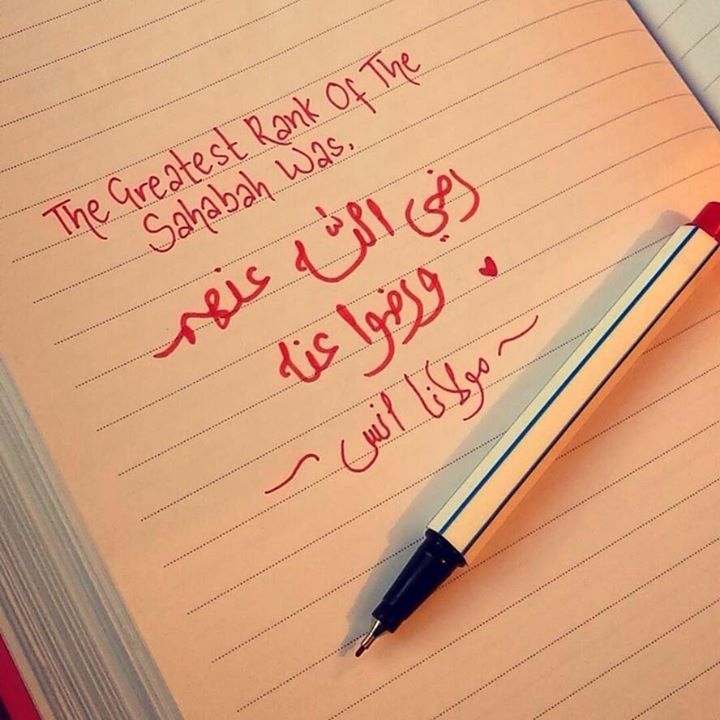 The Greatest Rank Of The
Sahabah Was,
رضي الله عنهم
ورضوا عنه
~ مولانا انس ~